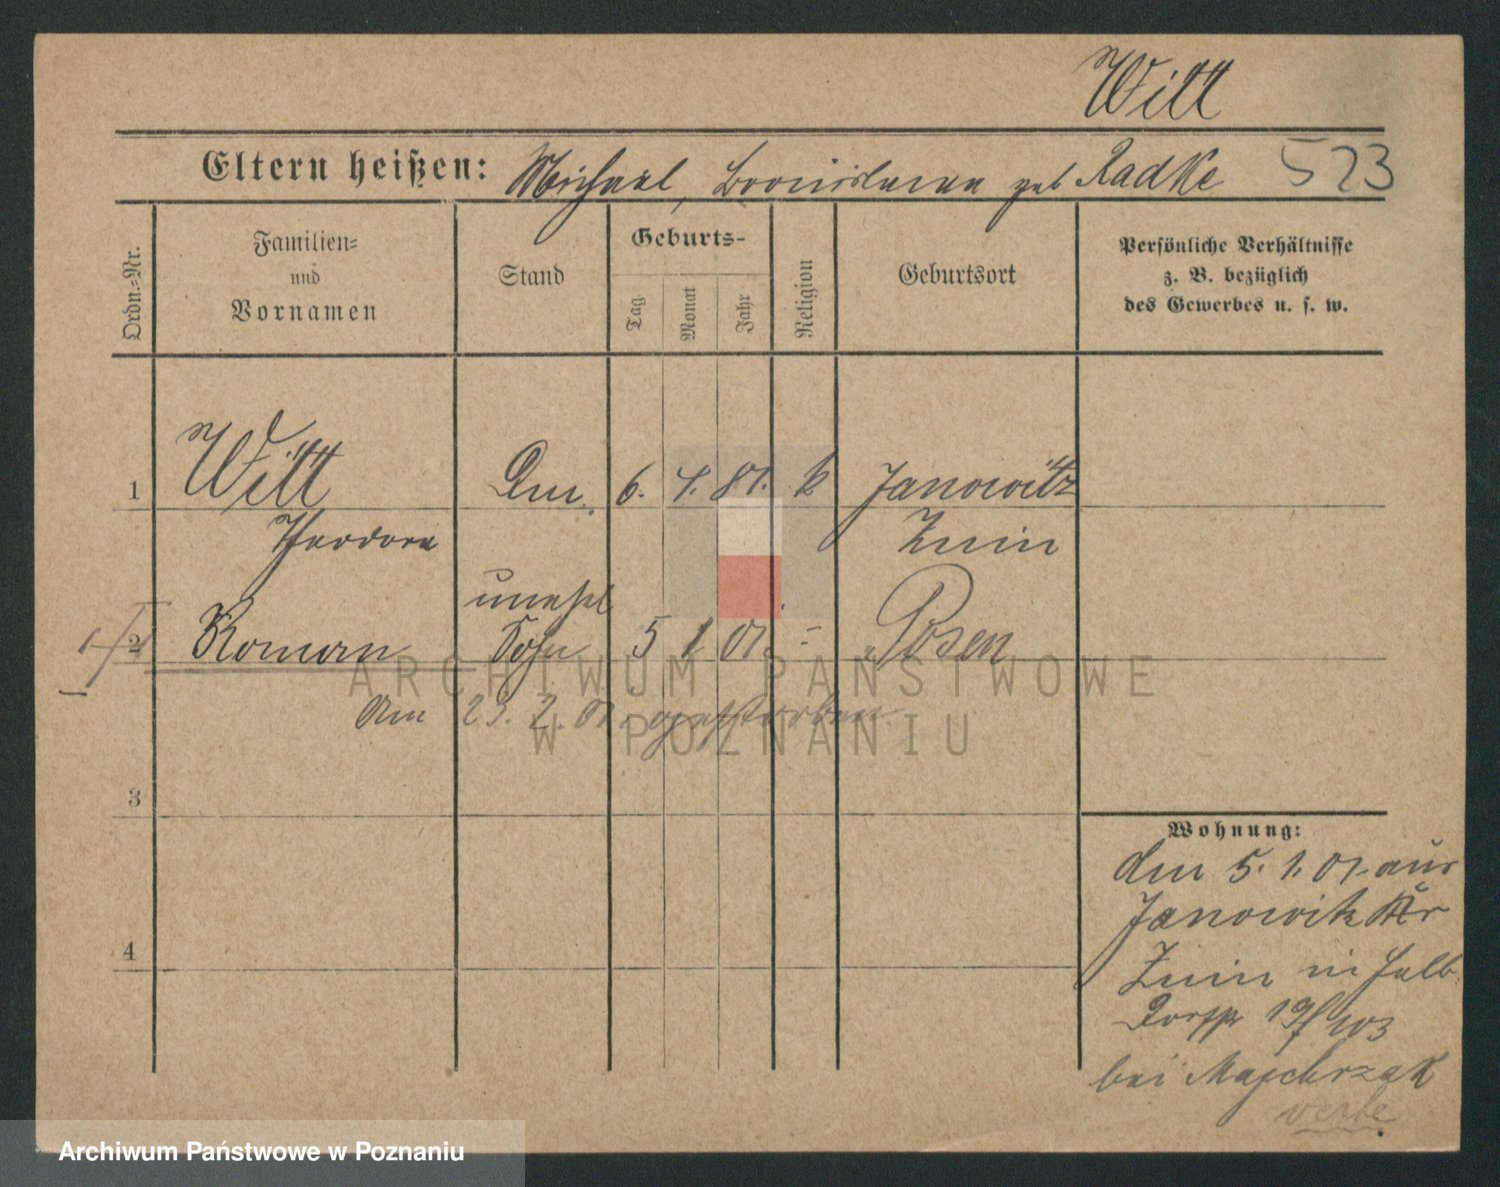 Witt
Eltern heißen: Michael, Bronislawa geb Radke 523
Ordn.-Nr.
Familien-
und
Vornamen
Stand
Geburts-
Tag
Monat
Jahr
Religion
Geburtsort
Persönliche Verhältnisse
z. B. bezüglich
des Gewerbes u. s. w.
1 Witt 6. 4. 81. k Janowitz
Theodora Znin
unehel
2 Roman Sohn 5 1 01. - Posen
Am 23. 2. 01. gestorben
ARCHIWUM PAŃSTWOWE
W POZNANIU
3
Wohnung:
den 5. 1. 01. aus
Janowitz Kr
4
Znin in Halb
Dorfstr 19/
bei Majchrzak
Archiwum Państwowe w Poznaniu